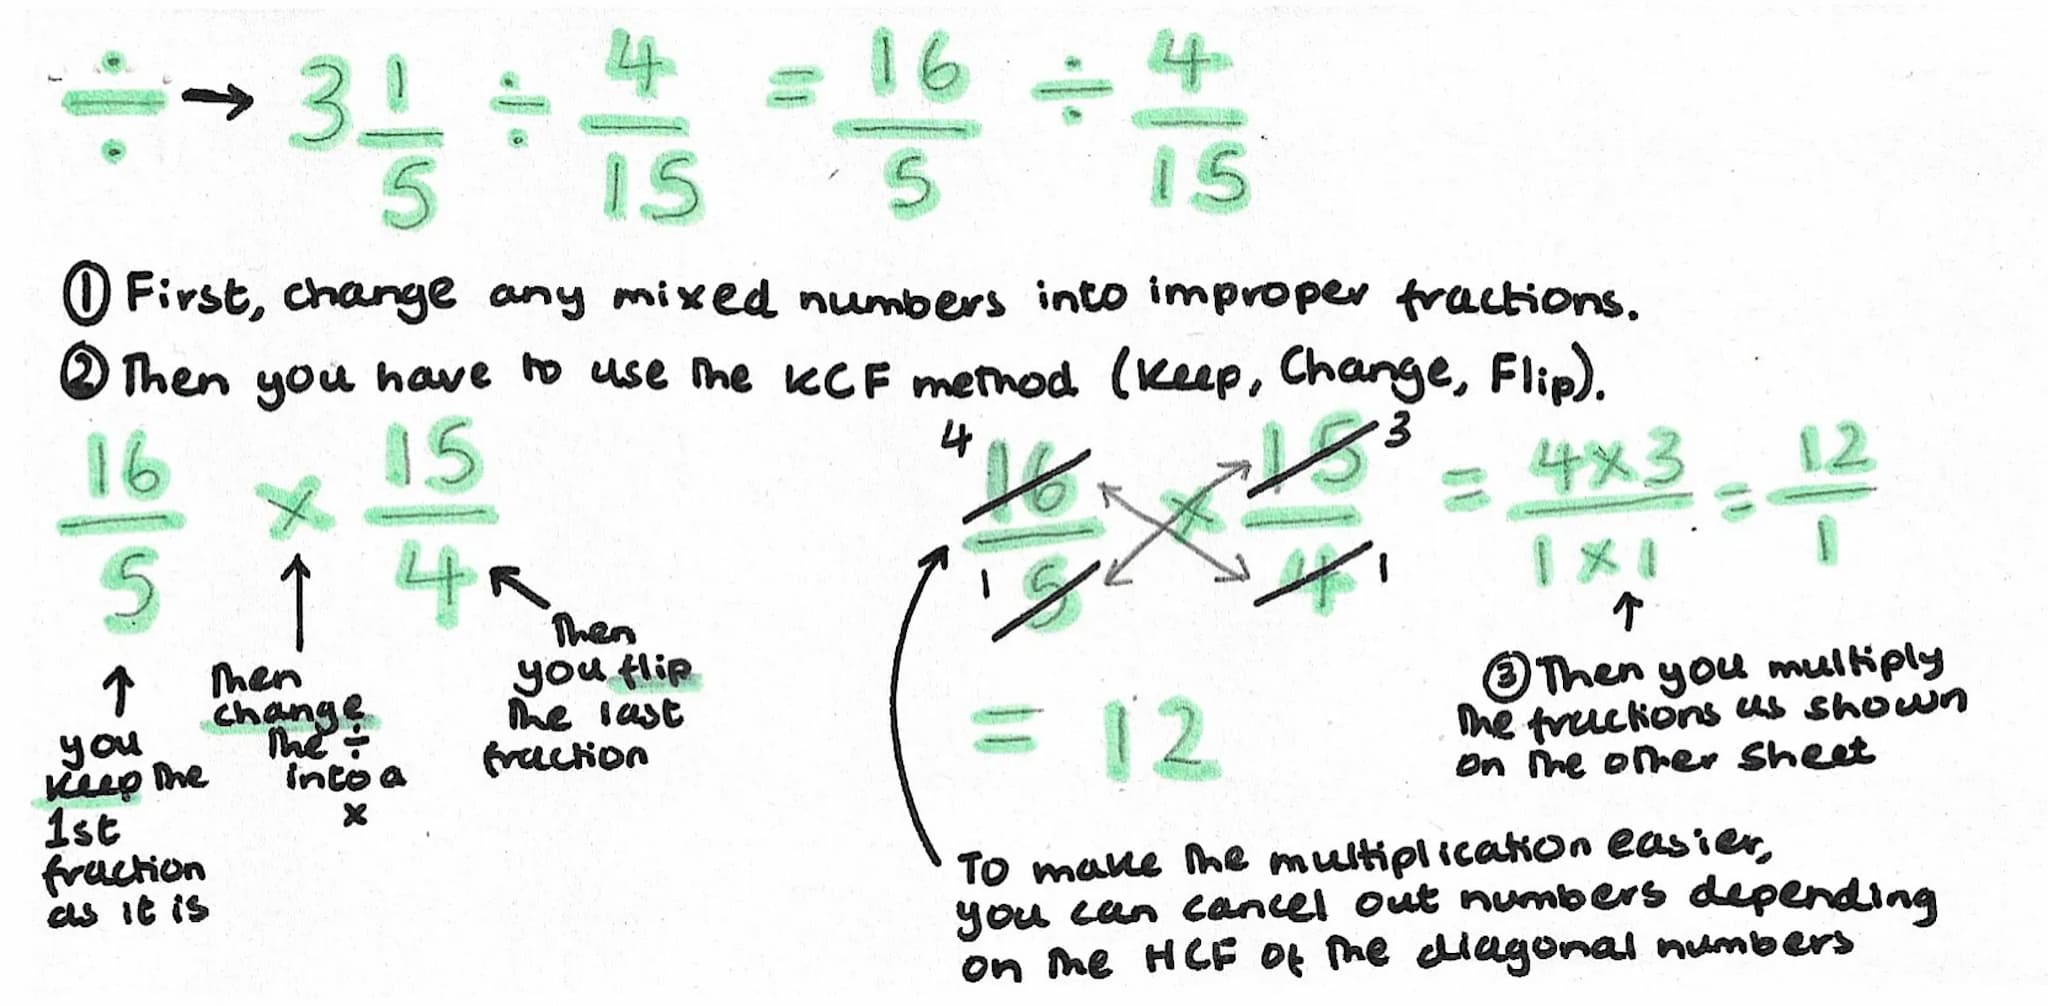 ÷ → 3 1/5 ÷ 4/15 = 16/5 ÷ 4/15
① First, change any mixed numbers into improper fractions.
② Then you have to use the KCF method (Keep, Change, Flip).
16/5 × 15/4
you
keep the
1st
fraction
as it is
Then
change
the ÷
into a
×
Then
you flip
the last
fraction
4 16/1 5 × 15 3/4 1 = 4×3/1×1 = 12/1
= 12
③ Then you multiply
the fractions as shown
on the other sheet
To make the multiplication easier,
you can cancel out numbers depending
on the HCF of the diagonal numbers